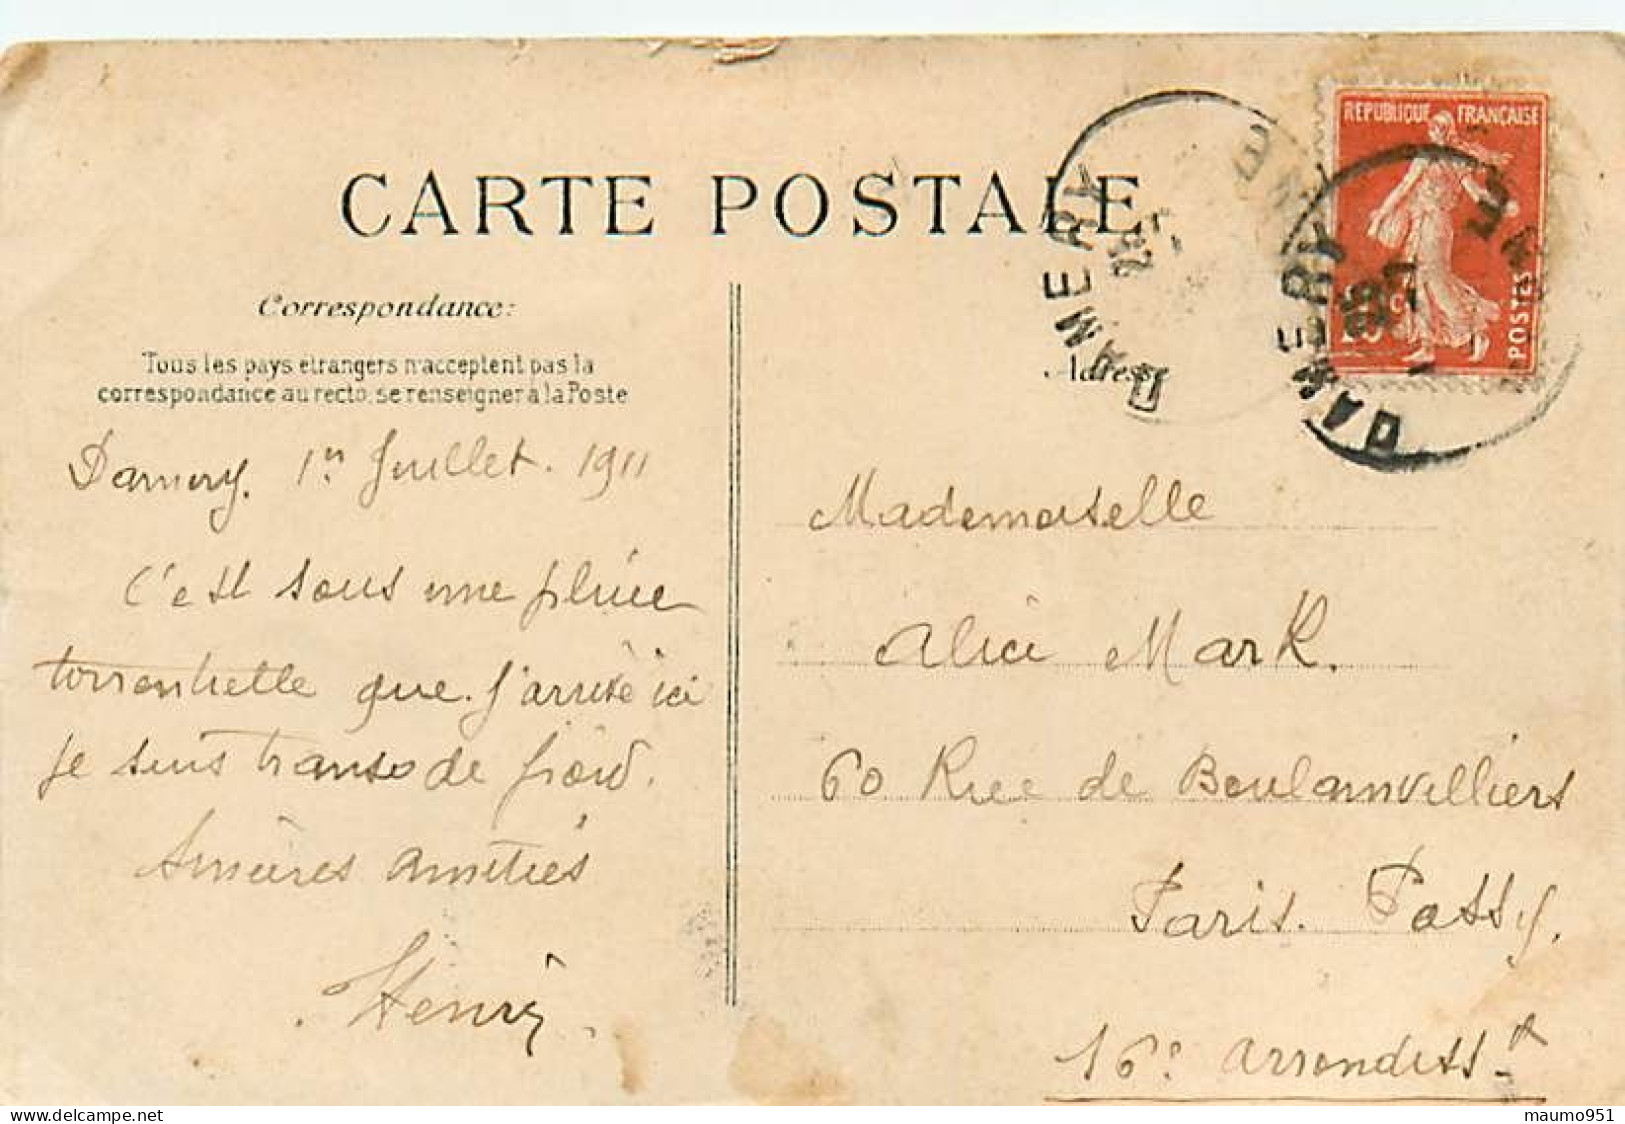 CARTE POSTALE
Correspondance:
Tous les pays etrangers n'acceptent pas la
correspondance au recto, se renseigner à la Poste
Damery. 1er Juillet. 1911
C'est sous une pluie
torrentielle que j'arrive ici
je suis transo de froid.
Sincères amitiés
Henry.
REPUBLIQUE FRANÇAISE
POSTES
10c
DAMERY
DAMERY
Adresse
Mademoiselle
Alice Mark.
60 Rue de Boulainvilliers
Paris. Passy.
16e arrondisst
maumo951